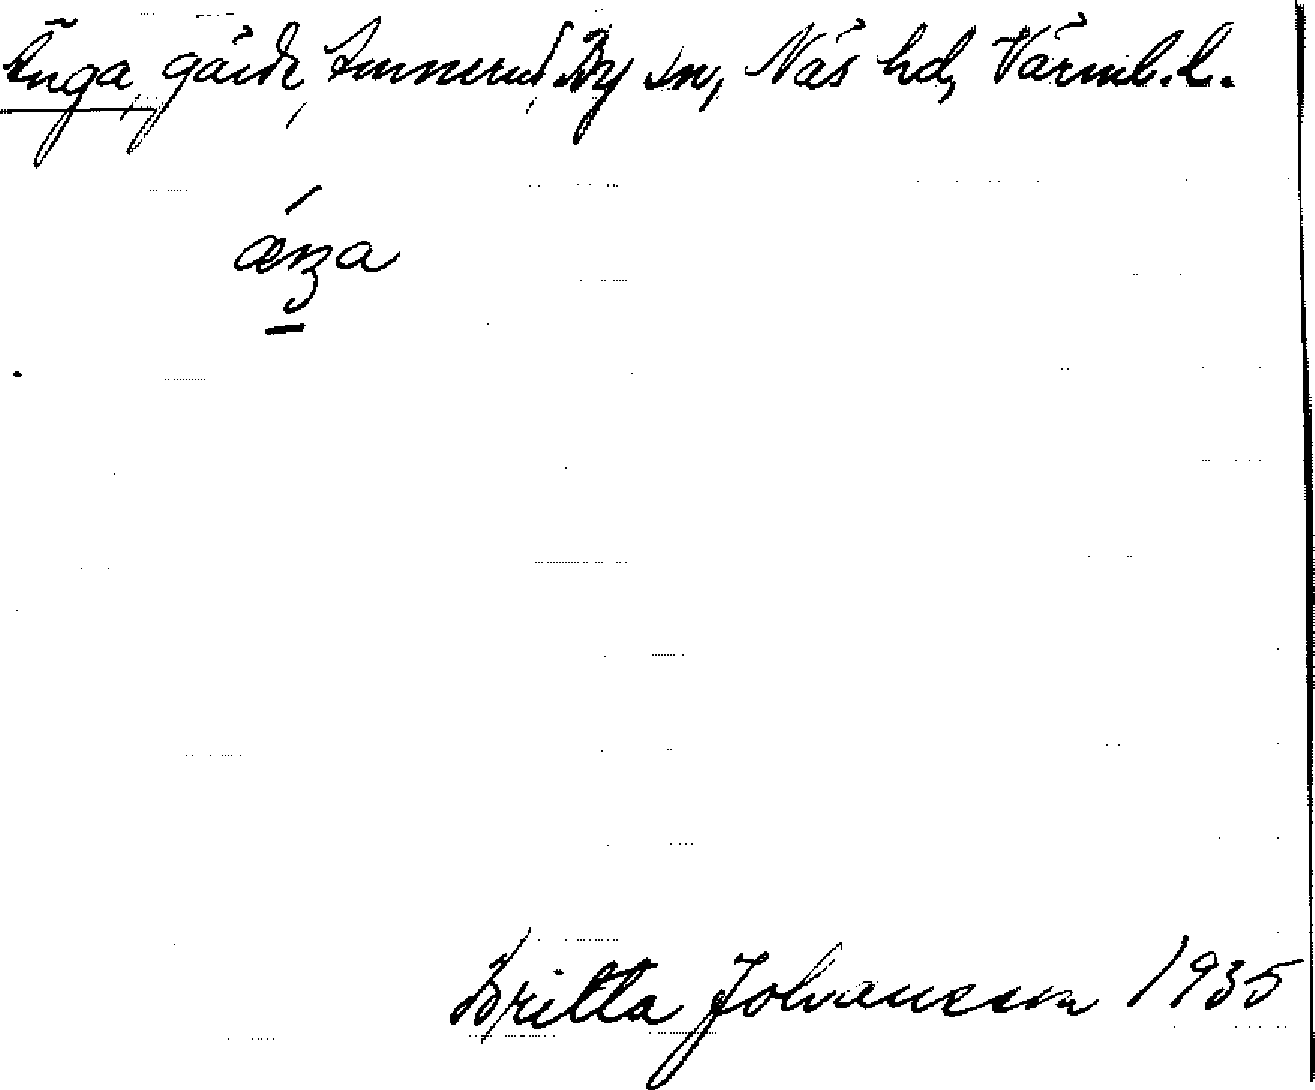 Änga, gård, Tunnerud, By sn, Näs hd, Värml. l.
ǽŋa
Britta Johansson 1935